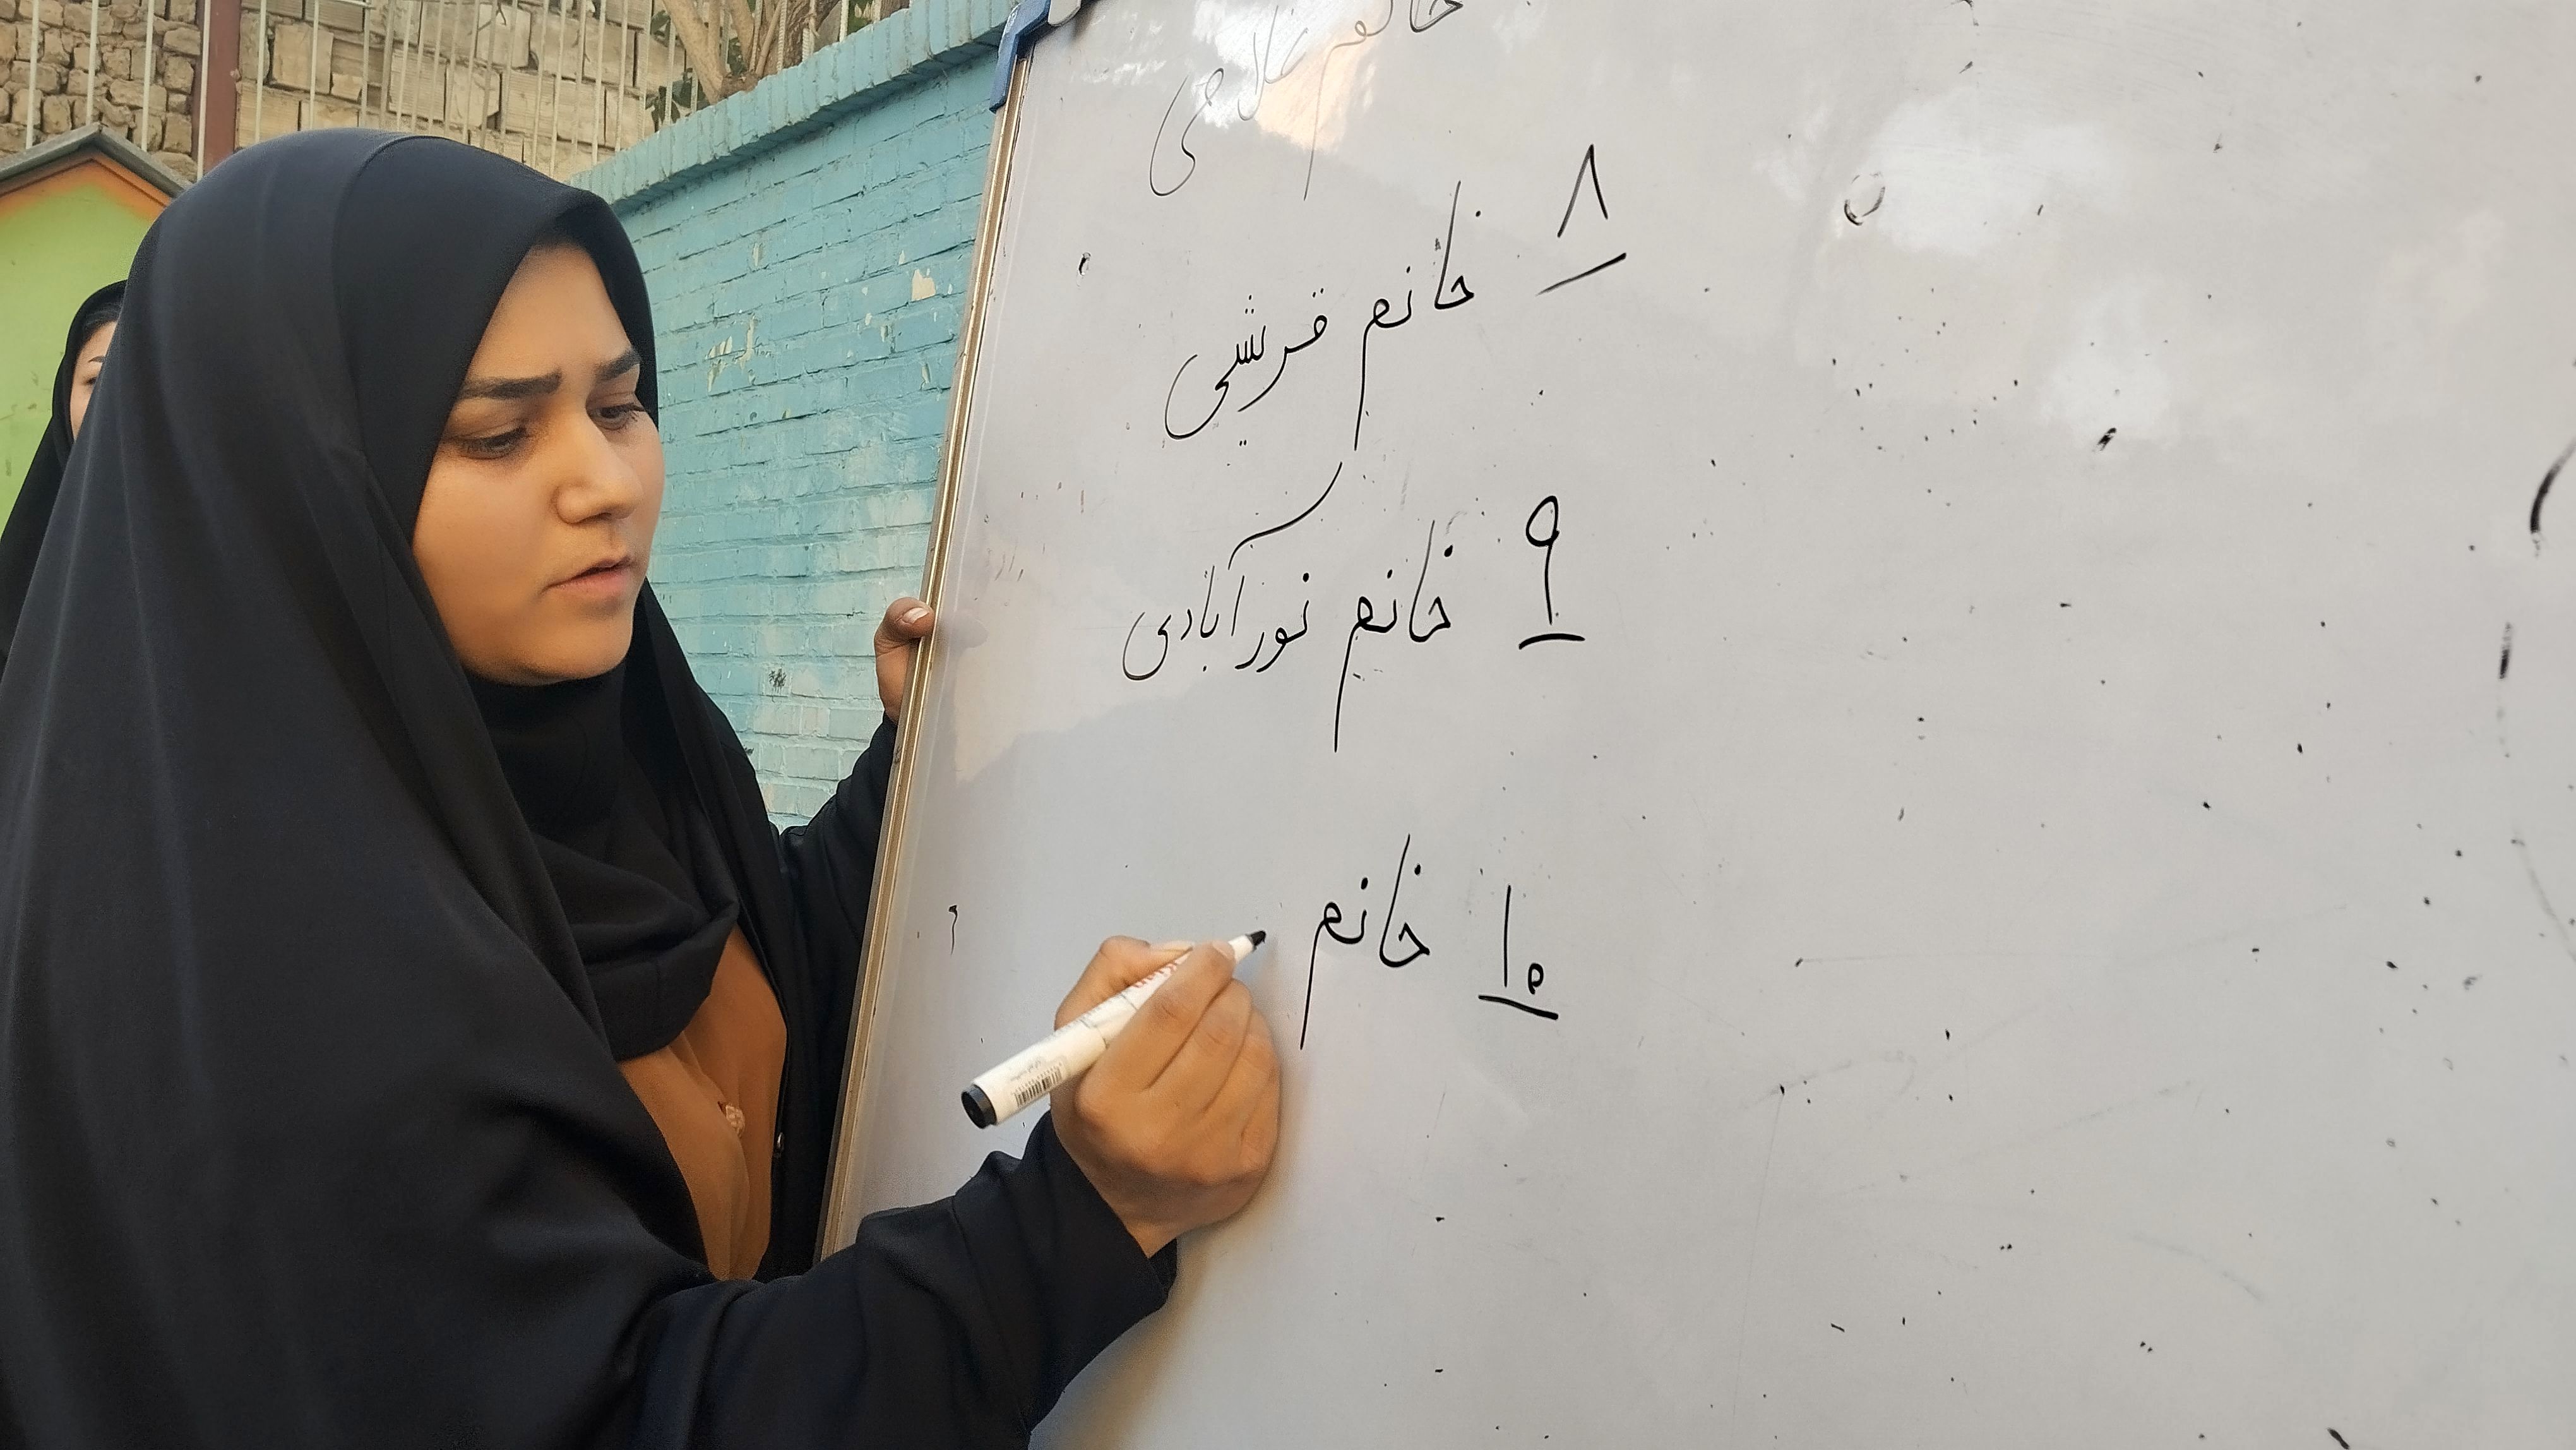 خانم غلامی
۸ خانم قرشی
۹ خانم نورآبادی
۱۰ خانم